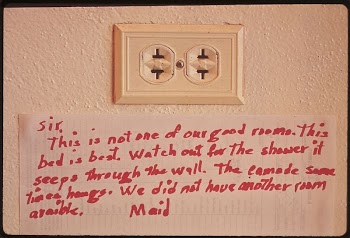 Sir,
This is not one of our good rooms. This
bed is best. Watch out for the shower it
seeps through the wall. The comode some
times hangs. We did not have another room
avaible. Maid